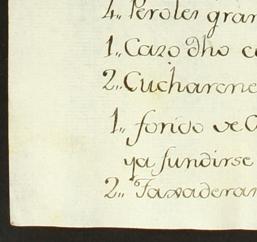 4.. Peroles gran
1.. Cazo dho c
2.. Cucharone
1.. forido ve C
ya fundirse
2.. Taxaderar